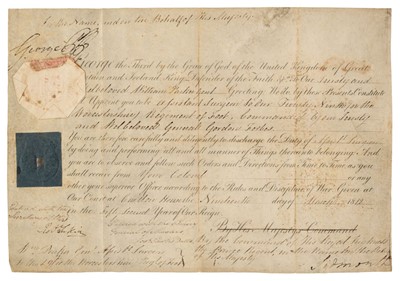 In the Name, and on the Behalf of His Majesty
George
George the Third by the Grace of God of the United Kingdom of Great
Britain and Ireland King, Defender of the Faith &c. To Our Trusty and
Welbeloved William Parker Gent. Greeting. We do by these Presents Constitute
& Appoint you to be Assistant Surgeon to Our Twenty Ninth or the
Worcestershire Regiment of Foot, Commanded by Our Trusty
and Welbeloved General Gordon Forbes
You are therefore carefully and diligently to discharge the Duty of Assist. Surgeon
by doing and performing all and all manner of Things thereunto belonging. And
you are to observe and follow such Orders and Directions from Time to time as you
shall receive from Your Colonel or
any other your superior Officer according to the Rules and Discipline of War. Given at
Our Court at Carlton House the Nineteenth day of 181
in the Fifty Second Year of Our Reign
By His Majesty's Command
By the Command of His Royal Highness
the Prince Regent, in the Name and on the Behalf
of His Majesty
Assist. Surgeon